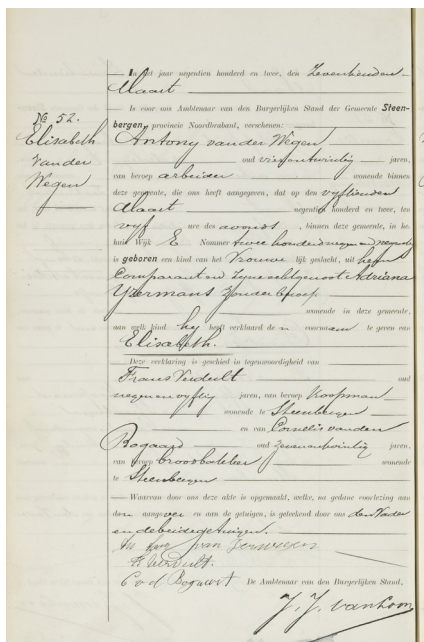 No 52.
Elisabeth
van der
Wegen
In het jaar negentien honderd en twee, den zeventienden
Maart
Is voor ons Ambtenaar van den Burgerlijken Stand der Gemeente Steen-
bergen, provincie Noordbrabant, verschenen:
Antony van der Wegen
oud vier en twintig jaren,
van beroep arbeider wonende binnen
deze gemeente, die ons heeft aangegeven, dat op den vyftienden
Maart negentien honderd en twee, ten
vyf ure des avonds, binnen deze gemeente, in het
huis Wijk E Nommer twee honderd negen en negentig
is geboren een kind van het vrouwe lijk geslacht, uit hem
Comparant en zyne echtgenoot Adriana
Yzermans zonder beroep
wonende in deze gemeente,
aan welk kind hy heeft verklaard de n voornaam te geven van
Elisabeth.
Deze verklaring is geschied in tegenwoordigheid van
Frans Verdult oud
negen en vyftig jaren, van beroep Koopman
wonende te Steenbergen
en van Cornelis van den
Bogaard oud zeven en twintig jaren,
van beroep wonende
te Steenbergen
Waarvan door ons deze akte is opgemaakt, welke, na gedane voorlezing aan
den aangever en aan de getuigen, is geteekend door ons den Vader
en de beide getuigen.
van der wegen
Verdult.
C v d Bogaart De Ambtenaar van den Burgerlijken Stand,
J. J. van Loon